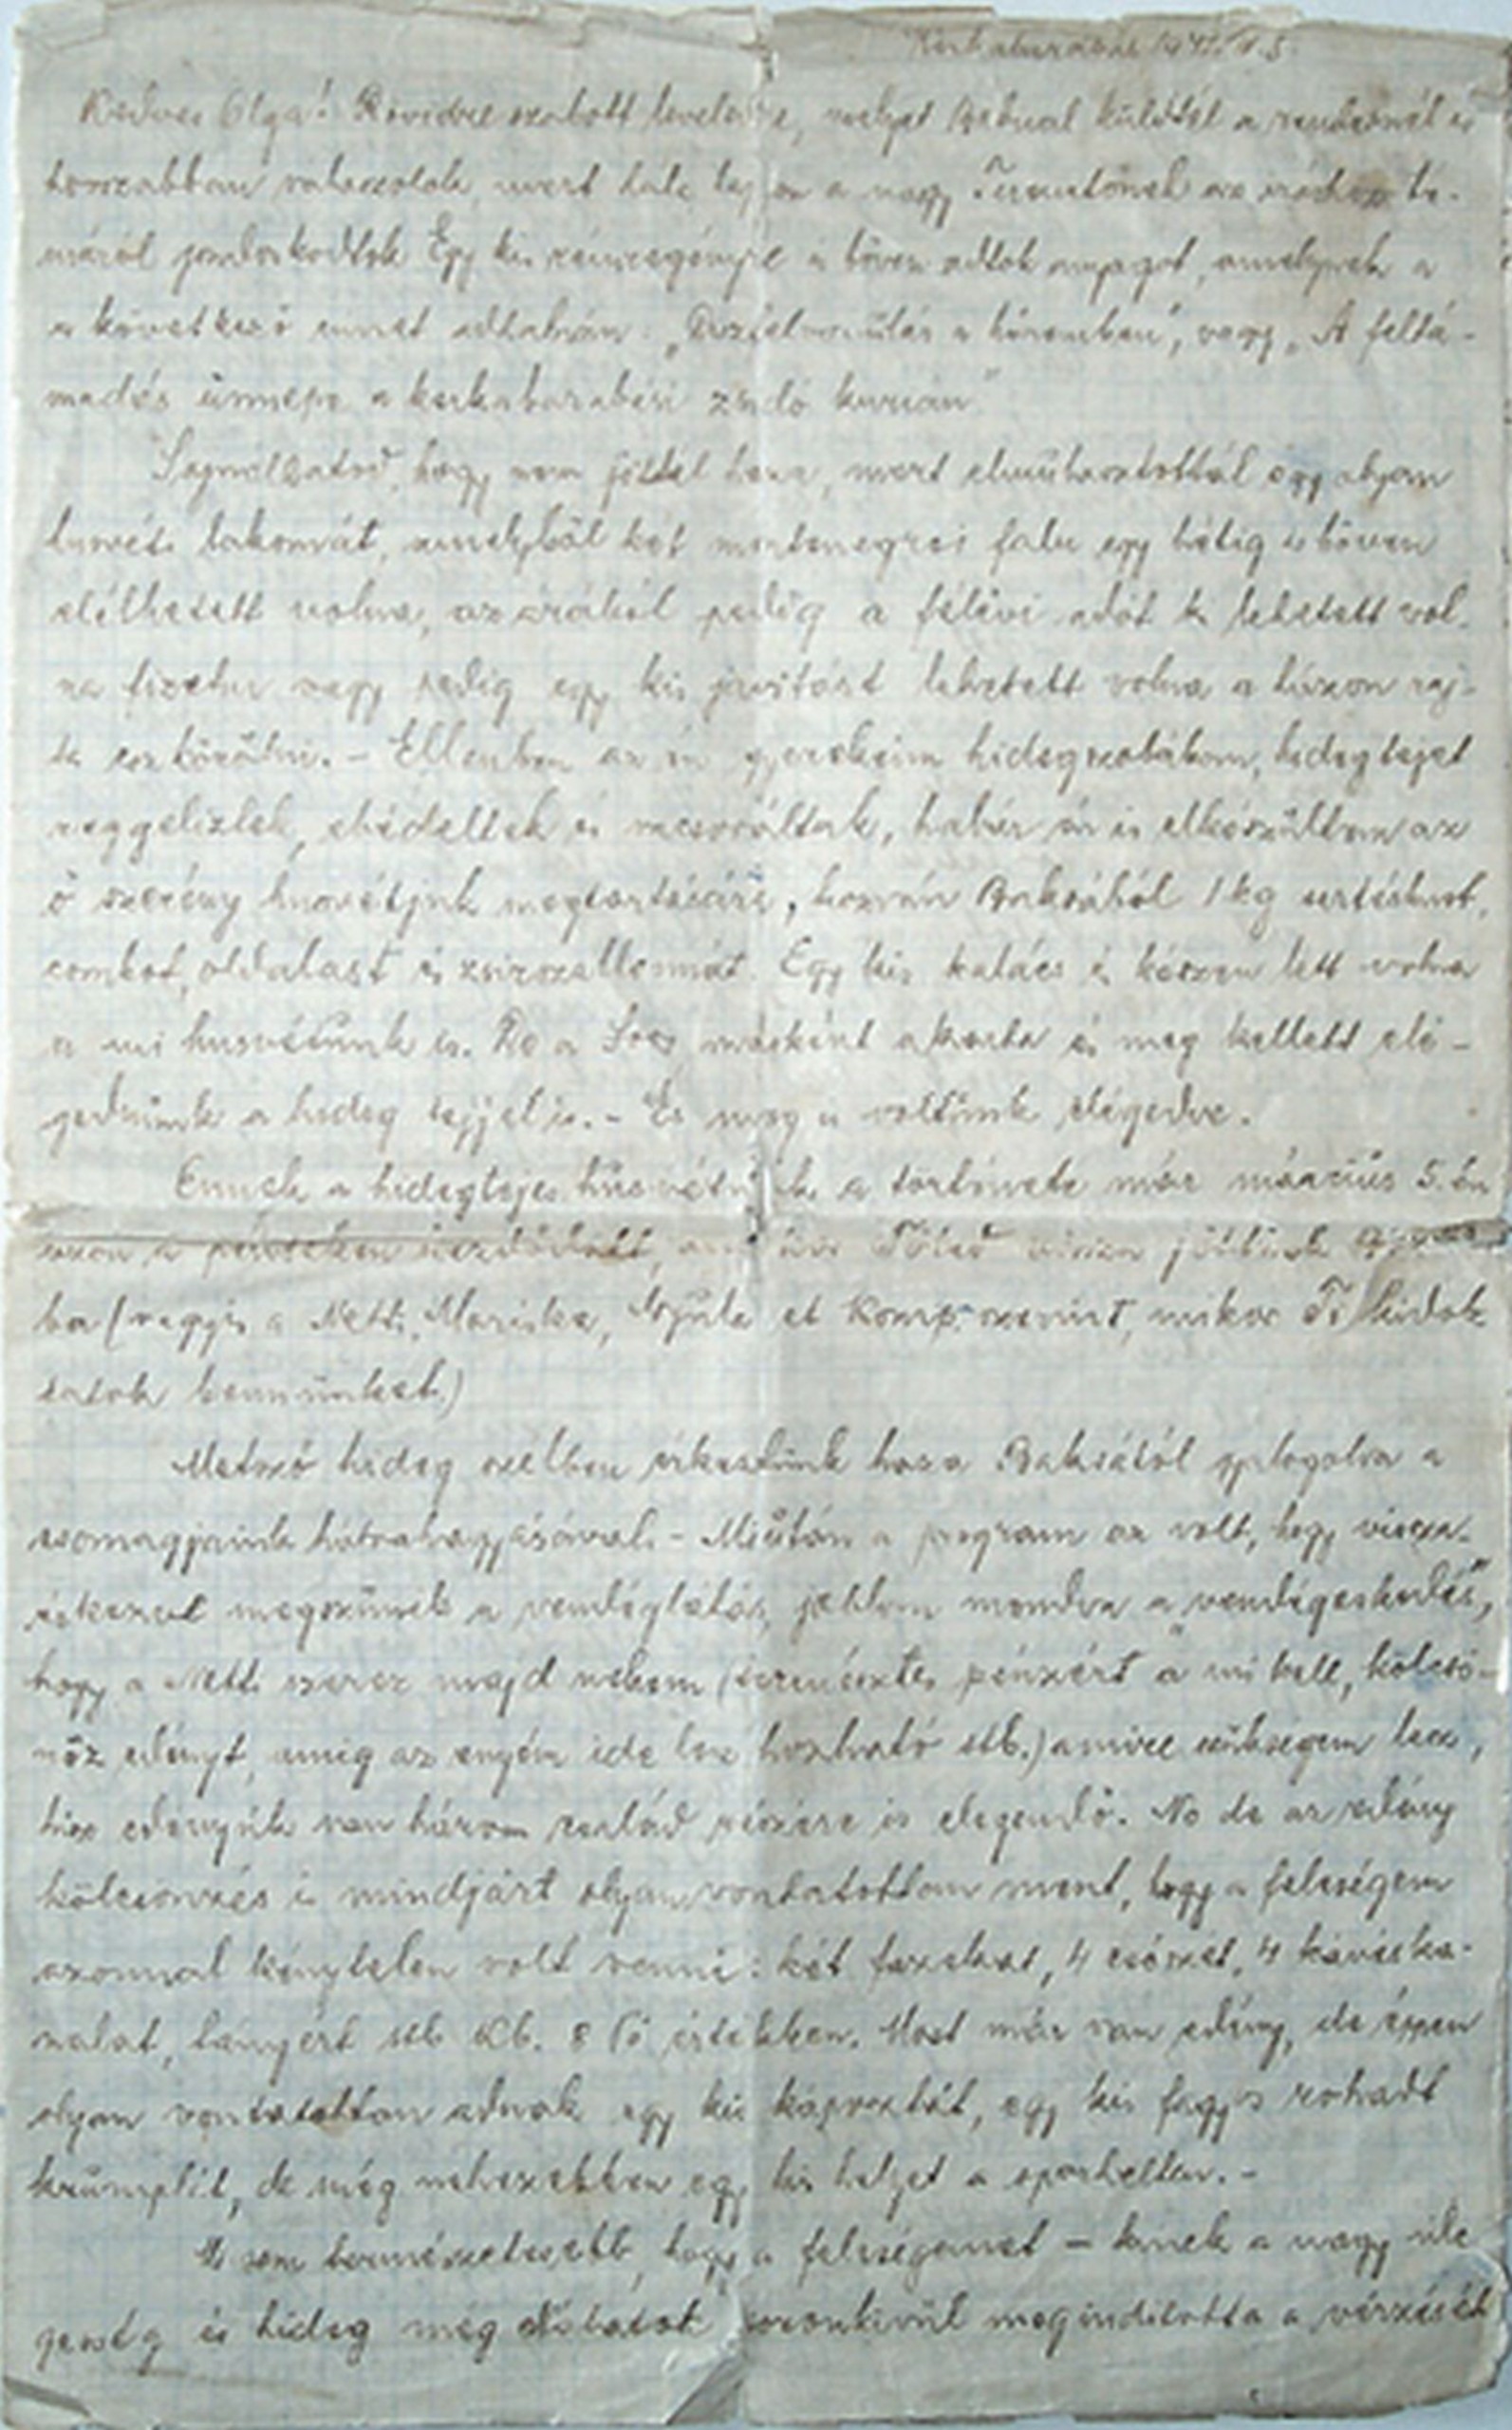 Kedves Olga! Rövidre szabott leveledre, melyet küldtél a rendesnél is
hosszabban válaszolok, mert hála legyen a nagy Teremtőnek az íráshoz té-
máról gondoskodtok. Egy kis rémregényre is bőven adtok anyagot, amelynek a
a következő címet adhatnám: „ a háremben", vagy „A feltá-
madás ünnepe a kerkabarabási zsidó kurián"
Sajnálhatod, hogy nem jöttél haza, mert elmulasztottál egy olyan
husvéti lakomát, amelyből két montenegrói falu egy hétig is bőven
élhetett volna, az árából pedig a félévi adót ki lehetett vol-
na fizetni vagy pedig egy kis javítást lehetett volna a házon raj-
ta eszközölni. – Ellenben az én gyerekeim hidegszobában, hidegtejet
reggeliztek, ebédeltek és vacsoráltak, habár én is elkészültem az
ő szerény husvétjuk megtartására, hozván Baksából 1 kg sertéshust,
combot, oldalast és zsirszallonnát. Egy kis kalács és készen lett volna
a mi husvétunk is. De a Sors másként akarta és meg kellett elé-
gednünk a hideg tejjel is. – És meg is voltunk elégedve.
Ennek a hidegtejes husvétnak a története már március 5.-én
azon a pénteken kezdődött, amikor vissza jöttünk
ba (vagyis a Netti, Mariska, et Komp. szerint, mikor Ti
tatok bennünket.)
Metsző hideg szélben érkeztünk haza Baksától gyalogolva a
csomagjaink hátrahagyásával. – Miután a program az volt, hogy vissza-
érkezve megszünik a vendéglátás, jobban mondva a „vendégeskedés",
hogy a Netti szerez majd nekem (természetes pénzért a mi kell, kölcsö-
nöz edényt, amig az enyém ide lesz hozható stb.) amire szükségem lesz,
hisz edényük van három család részére is elegendő. No de az edény
kölcsönzés is mindjárt olyan vontatottan ment, hogy a feleségem
azonnal kénytelen volt venni: két fazekat, 4 csészét, 4 kávéska-
nalat, tányért stb kb. 8 Pő értékben. Most már van edény, de éppen
olyan vontatottan adnak egy kis káposztát, egy kis fagyos rohadt
krumplit, de még nehezebben egy kis helyet a sparhelten. –
Mi sem természetesebb, hogy a feleségemet – kinek a nagy ide-
gesség és hideg még soronkivül megindította a vérzését